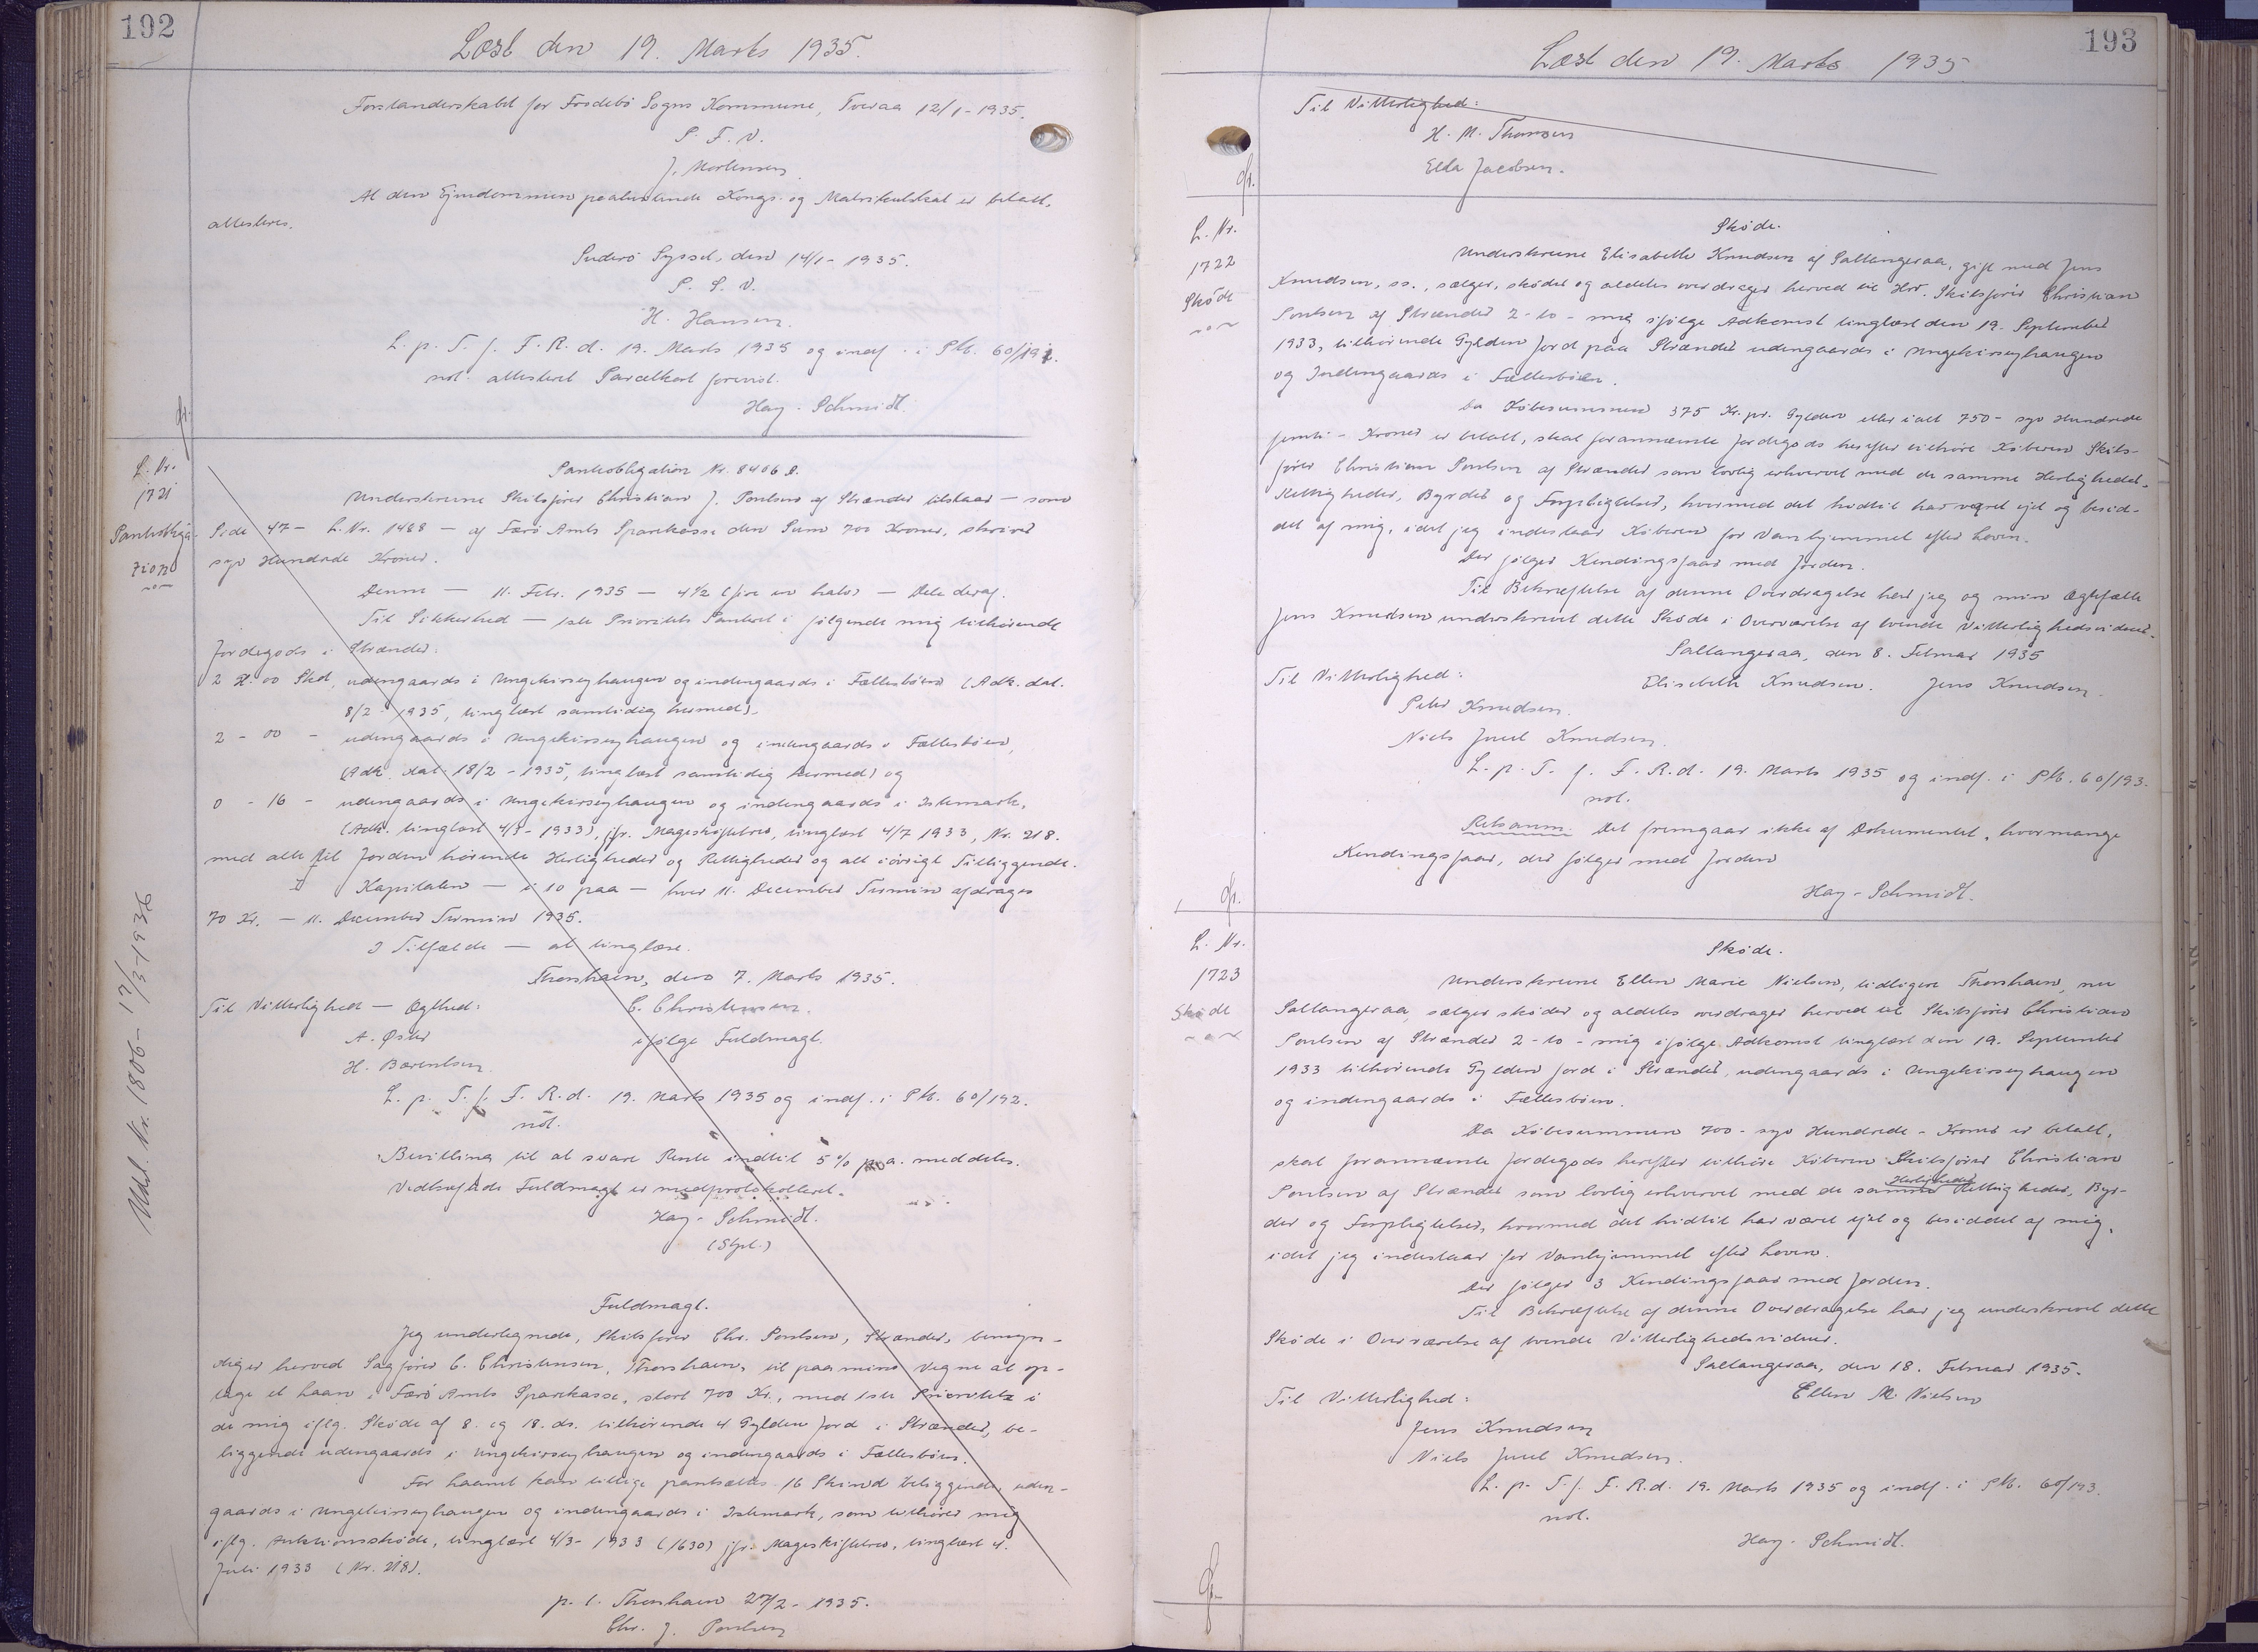 192
Læst den 19. Marts 1935.
Forstanderskabet for Frodebö Sogns Kommune, Tveraa 12/1-1935.
P. F. V.
J. Mortensen.
At den Ejendommen paahvilende Kongs- og Matrikulskat er betalt,
attesteres.
Suderö Syssel, den 14/1-1935.
P. S. V.
H. Hansen.
L. p. T. f. F. R. d. 19. Marts 1935 og indf. i Ptb. 60/191.
not. attesteret Parcelkort forevist.
Hay-Schmidt.
L. Nr.
1721
Pantobliga-
zion
Pantobligation Nr. 8406 D.
Underskrevne Skibsförer Christian J. Poulsen af Strænder tilstaar — som
Side 47 — L. Nr. 1488 — af Færö Amts Sparekasse den Sum 700 Kroner, skriver
syv Hundrede Kroner.
Denne — 11. Febr. 1935 — 4½ (fire en halv) — Dele deraf.
Til Sikkerhed — 1ste Prioritets Panteret i fölgende mig tilhörende
Jordegods i Strænder:
2 Gl. 00 Skd. udengaards i Ungekirseyhaugen og indengaards i Fællesböen (Adk. dat.
8/2-1935, tinglæst samtidig hermed),
2 - 00 - udengaards i Ungekirseyhaugen og indengaards i Fællesböen,
(Adk. dat. 18/2-1935, tinglæst samtidig hermed) og
0 - 16 - udengaards i Ungekirseyhaugen og indengaards i Istemark,
(Adk. tinglæst 4/3-1933), jfr. Mageskiftebrev, tinglæst 4/7 1933, Nr. 218.
med alle til Jorden hörende Herligheder og Rettigheder og alt iövrigt Tilliggende.
Kapitalen — i 10 paa — hver 11. December Termin afdrages
70 Kr. — 11. December Termin 1935.
I Tilfælde — at tinglæse.
Thorshavn, den 7. Marts 1935.
Til Vitterlighed — Ægthed: C. Christensen.
A. Öster ifölge Fuldmagt.
H. Bærentsen.
L. p. T. f. F. R. d. 19. Marts 1935 og indf. i Ptb. 60/192.
not.
Bevilling til at svare Rente indtil 5% p. a. meddeles.
Vedhæftede Fuldmagt er medprotokolleret.
Hay-Schmidt.
(Stpl.)
Udsl. Nr. 1806 - 17/3-1936
Fuldmagt.
Jeg undertegnede, Skibsförer Chr. Poulsen, Strænder, bemyn-
diger herved Sagförer C. Christensen, Thorshavn, til paa mine Vegne at op-
tage et Laan i Færö Amts Sparekasse, stort 700 Kr., med 1ste Prioritet i
de mig iflg. Sköde af 8. og 18. ds. tilhörende 4 Gylden Jord i Strænder, be-
liggende udengaards i Ungekirseyhaugen og indengaards i Fællesböen.
For Laanet kan tillige pantsættes 16 Skind beliggende uden-
gaards i Ungekirseyhaugen og indengaards i Istemark, som tilhörer mig
iflg. Auktionssköde, tinglæst 4/3-1933 (1630) jfr. Mageskiftebrev, tinglæst 4.
Juli 1933 (Nr. 218).
p. t. Thorshavn 27/2-1935.
Chr. J. Poulsen
193
Læst den 19. Marts 1935.
Til Vitterlighed:
H. M. Thomsen
Ella Jacobsen.
L. Nr.
1722
Sköde
Sköde.
Underskrevne Elisabeth Knudsen af Saltangeraa, gift med Jens
Knudsen, ss., sælger, sköder og aldeles overdrager herved til Hr. Skibsförer Christian
Poulsen af Strænder 2 - to - mig ifölge Adkomst tinglæst den 19. September
1933, tilhörende Gylden Jord paa Strænder udengaards i Ungekirseyhaugen
og Indengaards i Fællesböen.
Da Köbesummen 375 Kr. pr. Gylden eller ialt 750 - syv Hundrede
femti - Kroner er betalt, skal forannævnte Jordegods herefter tilhöre Köberen Skibs-
förer Christian Poulsen af Strænder som lovlig erhvervet med de samme Herligheder,
Rettigheder, Byrder og Forpligtelser, hvormed det hidtil har været ejet og besid-
det af mig, idet jeg indestaar Köberen for Vanhjemmel efter Loven.
Der fölger Kendingsfaar med Jorden.
Til Bekræftelse af denne Overdragelse har jeg og min Ægtefælle
Jens Knudsen underskrevet dette Sköde i Overværelse af tvende Vitterlighedsvidner.
Saltangeraa, den 8. Februar 1935
Til Vitterlighed: Elisabeth Knudsen. Jens Knudsen.
Peter Knudsen.
Niels Juul Knudsen.
L. p. T. f. F. R. d. 19. Marts 1935 og indf. i Ptb. 60/193.
not.
Retsanm. Det fremgaar ikke af Dokumentet, hvormange
Kendingsfaar, der fölger med Jorden
Hay-Schmidt.
L. Nr.
1723
Sköde
Sköde.
Underskrevne Ellen Marie Nielsen, tidligere Thorshavn, nu
Saltangeraa, sælger sköder og aldeles overdrager herved til Skibsförer Christian
Poulsen af Strænder 2 - to - mig ifölge Adkomst tinglæst den 19. September
1933 tilhörende Gylden Jord i Strænder, udengaards i Ungekirseyhaugen
og indengaards i Fællesböen.
Da Köbesummen 700 - syv Hundrede - Kroner er betalt,
skal forannævnte Jordegods herefter tilhöre Köberen Skibsförer Christian
Poulsen af Strænder som lovlig erhvervet med de samme Herligheder Rettigheder, Byr-
der og Forpligtelser, hvormed det hidtil har været ejet og besiddet af mig,
idet jeg indestaar for Vanhjemmel efter Loven.
Der fölger 3 Kendingsfaar med Jorden.
Til Bekræftelse af denne Overdragelse har jeg underskrevet dette
Sköde i Overværelse af tvende Vitterlighedsvidner.
Saltangeraa, den 18. Februar 1935.
Til Vitterlighed: Ellen M. Nielsen
Jens Knudsen
Niels Juul Knudsen.
L. p. T. f. F. R. d. 19. Marts 1935 og indf. i Ptb. 60/193.
not.
Hay-Schmidt.